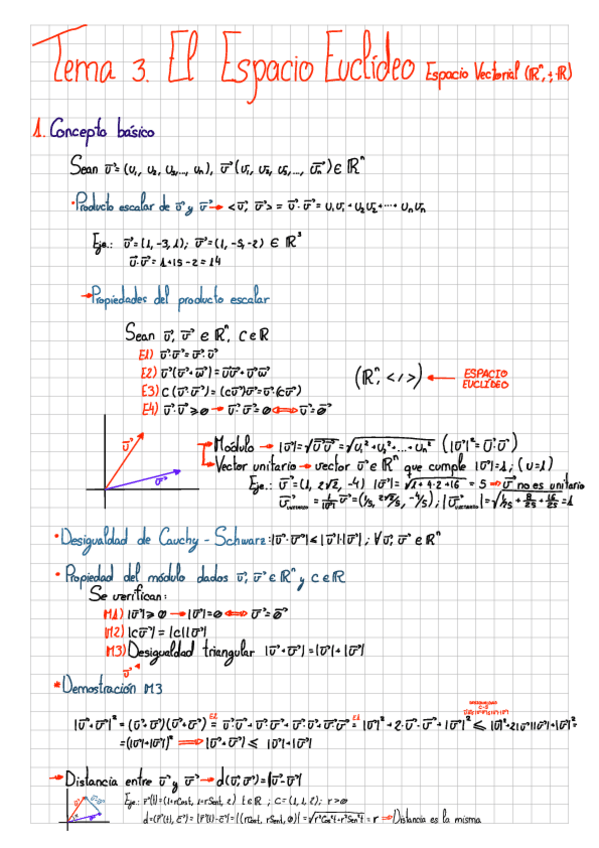 Tema 3. El Espacio Euclídeo Espacio Vectorial (ℝⁿ, +, ·ℝ)
1. Concepto básico
Sean u⃗=(u₁, u₂, u₃,..., uₙ), v⃗(v₁, v₂, v₃,..., v⃗ₙ) ∈ ℝⁿ
· Producto escalar de u⃗ y v⃗ → <u⃗, v⃗> = u⃗·v⃗ = u₁v₁+u₂v₂+···+uₙvₙ
Eje.: u⃗=(1,-3,1); v⃗=(1,-5,-2) ∈ ℝ³
u⃗·v⃗ = 1+15-2=14
→ Propiedades del producto escalar
Sean u⃗, v⃗ ∈ ℝⁿ, c∈ℝ
E1) u⃗·v⃗ = v⃗·u⃗
E2) u⃗(v⃗+w⃗) = u⃗v⃗+u⃗w⃗
E3) c(u⃗·v⃗) = (cu⃗)v⃗ = u⃗·(cv⃗)
(ℝⁿ, </>) ← ESPACIO EUCLÍDEO
E4) u⃗·u⃗ ≥ 0 → u⃗·u⃗ = 0 ⟺ u⃗=0⃗
u⃗
v⃗
→ Módulo → |u⃗|=√u⃗u⃗=√u₁²+u₂²+...+uₙ² (|u⃗|²=u⃗·u⃗)
→ Vector unitario → vector u⃗∈ℝⁿ que cumple |u⃗|=1; (u=1)
Eje.: u⃗=(1, 2√2, -4) |u⃗|=√1+4·2+16 = 5 → u⃗ no es unitario
u⃗ᵤₙᵢₜₐᵣᵢₒ = 1/|u⃗| u⃗=(1/5, 2√2/5, -4/5); |u⃗ᵤₙᵢₜₐᵣᵢₒ|=√1/25+8/25+16/25=1
· Desigualdad de Cauchy-Schwarz: |u⃗·v⃗|≤|u⃗|·|v⃗|; ∀u⃗, v⃗∈ℝⁿ
· Propiedad del módulo dados u⃗, v⃗∈ℝⁿ y c∈ℝ
Se verifican:
M1) |u⃗|≥0 → |u⃗|=0 ⟺ u⃗=0⃗
M2) |cu⃗| = |c||u⃗|
M3) Desigualdad triangular |u⃗+v⃗|=|u⃗|+|v⃗|
· Demostración M3
|u⃗+v⃗|² = (u⃗+v⃗)(u⃗+v⃗) =ᴱ² u⃗·u⃗+u⃗·v⃗+v⃗·u⃗+v⃗·v⃗ =ᴱ¹ |u⃗|²+2·u⃗·v⃗+|v⃗|² ≤ |u⃗|²+2|u⃗||v⃗|+|v⃗|²=
=(|u⃗|+|v⃗|)² ⟹ |u⃗+v⃗| ≤ |u⃗|+|v⃗|
→ Distancia entre u⃗ y v⃗ → d(u⃗,v⃗)=|u⃗-v⃗|
Eje.: r⃗(t)=(1+rCost, 1+rSent, 2) t∈ℝ; C=(1,1,2); r>0
d=(r⃗(t), c⃗)=|r⃗(t)-c⃗|=|(rCost, rSent, 0)|=√r²Cos²t+r²Sen²t = r → Distancia es la misma